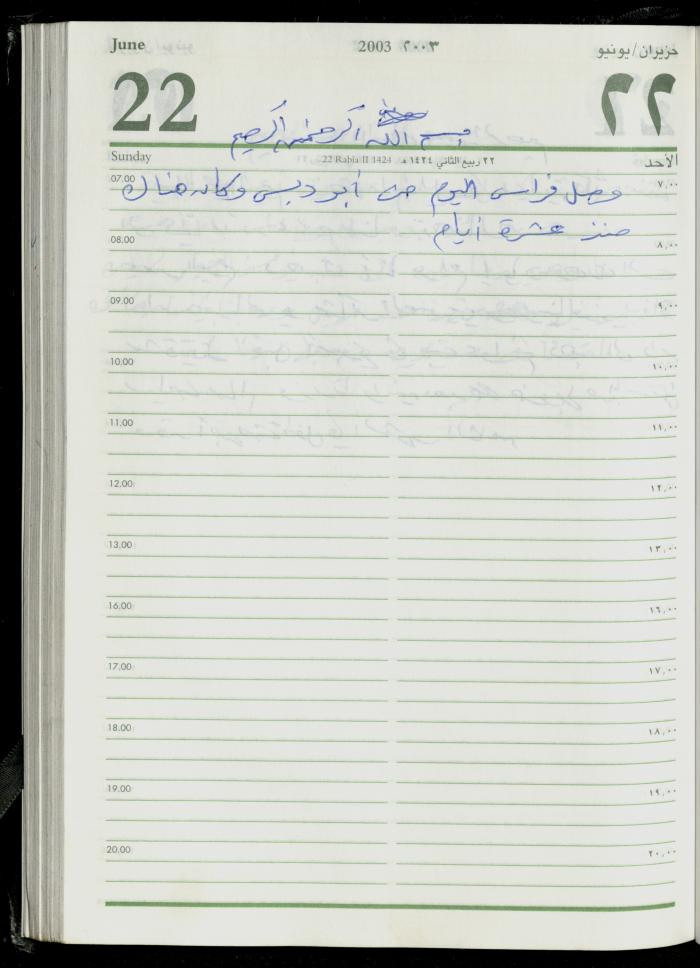 June 2003 ٢٠٠٣ حزيران/يونيو
22 ٢٢
بسم الله الرحمن الرحيم
Sunday 22 Rabia II 1424 ٢٢ ربيع الثاني ١٤٢٤ هـ الأحد
07.00 ٧,٠٠
وصل فراس اليوم من أبو ديس وكان هناك
منذ عشرة أيام
08.00 ٨,٠٠
09.00 ٩,٠٠
10.00 ١٠,٠٠
11.00 ١١,٠٠
12.00 ١٢,٠٠
13.00 ١٣,٠٠
16.00 ١٦,٠٠
17.00 ١٧,٠٠
18.00 ١٨,٠٠
19.00 ١٩,٠٠
20.00 ٢٠,٠٠